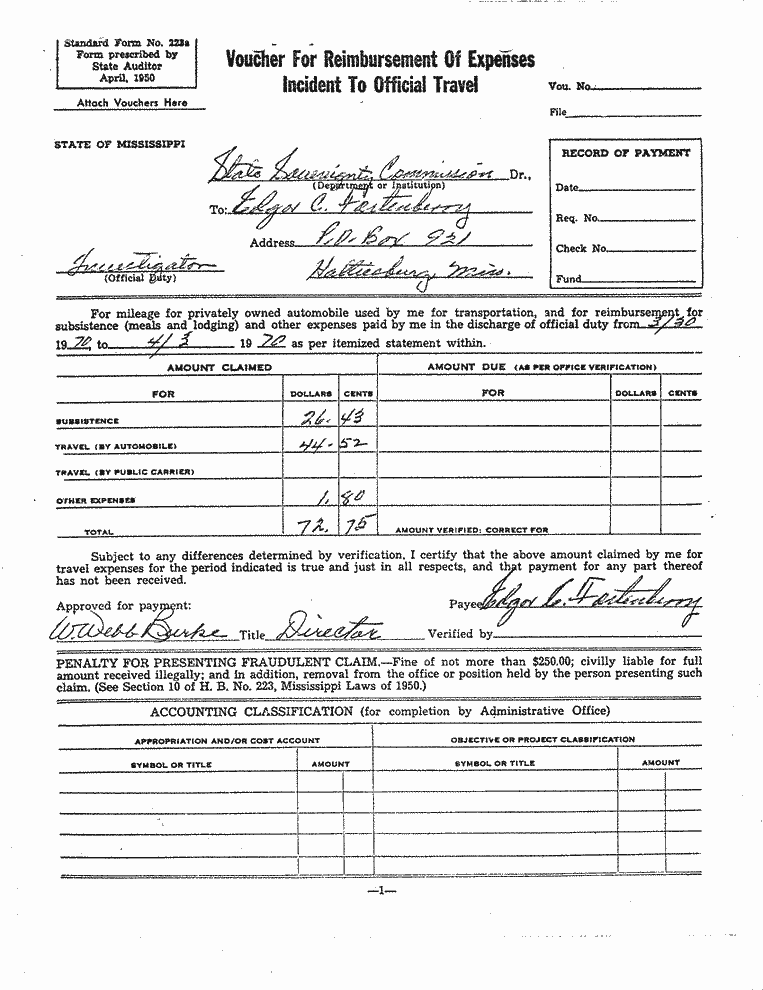 Standard Form No. 223a
Form prescribed by
State Auditor
April, 1950
Attach Vouchers Here
Voucher For Reimbursement Of Expenses
Incident To Official Travel
Vou. No.
File
STATE OF MISSISSIPPI
State Sovereignty Commission Dr.,
(Department or Institution)
To: Edgar C. Fortenberry
Address P.O. Box 921
Investigator Hattiesburg, Miss.
(Official Duty)
RECORD OF PAYMENT
Date
Req. No.
Check No.
Fund
For mileage for privately owned automobile used by me for transportation, and for reimbursement for
subsistence (meals and lodging) and other expenses paid by me in the discharge of official duty from 3/30
1970, to 4/3 1970 as per itemized statement within.
AMOUNT CLAIMED AMOUNT DUE (AS PER OFFICE VERIFICATION)
FOR DOLLARS CENTS FOR DOLLARS CENTS
SUBSISTENCE 26. 43
TRAVEL (BY AUTOMOBILE) 44. 52
TRAVEL (BY PUBLIC CARRIER)
OTHER EXPENSES 1. 80
TOTAL 72. 75 AMOUNT VERIFIED: CORRECT FOR
Subject to any differences determined by verification, I certify that the above amount claimed by me for
travel expenses for the period indicated is true and just in all respects, and that payment for any part thereof
has not been received.
Approved for payment: Payee Edgar C. Fortenberry
W. Webb Burke Title Director Verified by
PENALTY FOR PRESENTING FRAUDULENT CLAIM.—Fine of not more than $250.00; civilly liable for full
amount received illegally; and in addition, removal from the office or position held by the person presenting such
claim. (See Section 10 of H. B. No. 223, Mississippi Laws of 1950.)
ACCOUNTING CLASSIFICATION (for completion by Administrative Office)
APPROPRIATION AND/OR COST ACCOUNT OBJECTIVE OR PROJECT CLASSIFICATION
SYMBOL OR TITLE AMOUNT SYMBOL OR TITLE AMOUNT
—1—